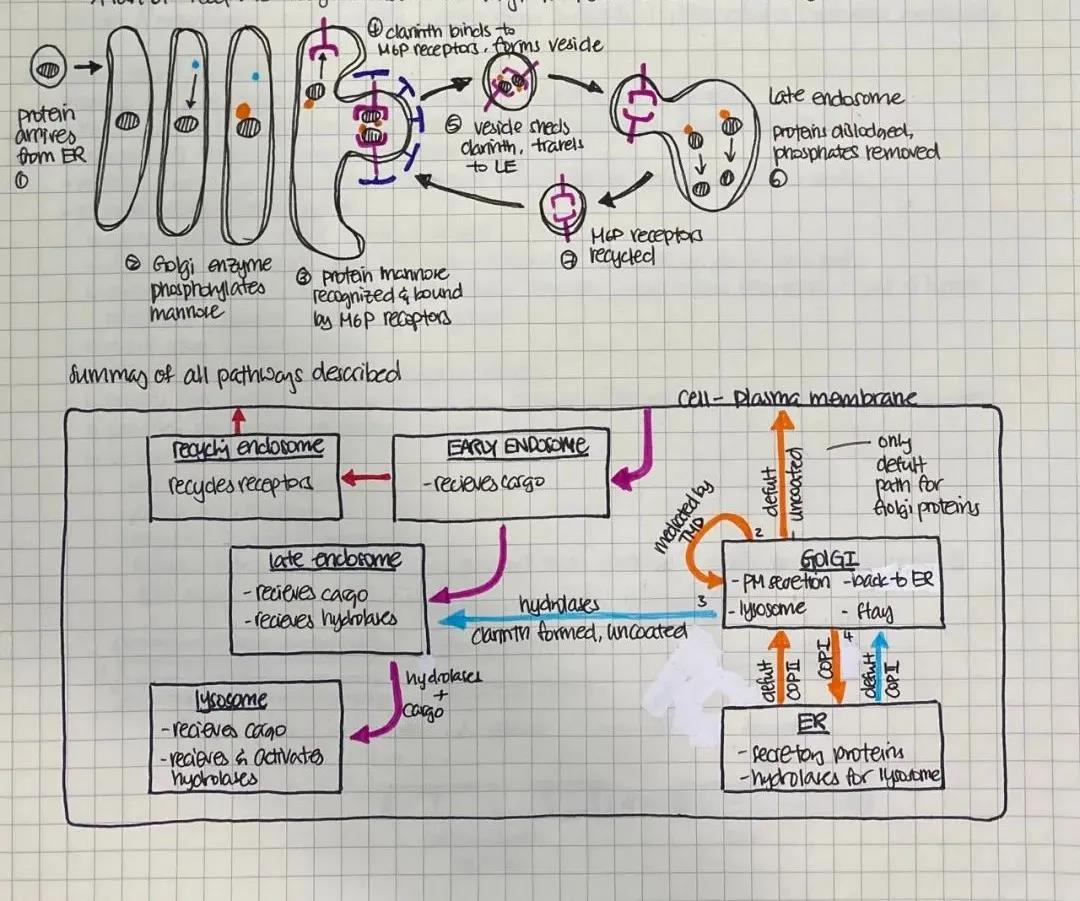 ④ clarinth binds to
M6P receptors, forms veside
protein
arrives
from ER
①
② Golgi enzyme
phosphorylates
mannose
③ protein mannose
recognized & bound
by M6P receptors
⑤ veside sheds
clarinth, travels
to LE
Late endosome
proteins dislodged,
phosphates removed
⑥
M6P receptors
⑦ recycled
summary of all pathways described
cell - plasma membrane
recyclig endosome
recycles receptors
EARLY ENDOSOME
- recieves cargo
late endosome
- recieves cargo
- recieves hydrolases
lysosome
- recieves cargo
- recieves & activates
hydrolases
hydrolases
+
cargo
hydrolases
3
clarinth formed, uncoated
mediated by
TMD
2
defult
uncoated
only
defult
path for
Golgi proteins
GOLGI
- PM secretion - back to ER
- lysosome - stay
defult
COPII
COPI
4
defult
COPII
ER
- secretory proteins
- hydrolases for lysosome